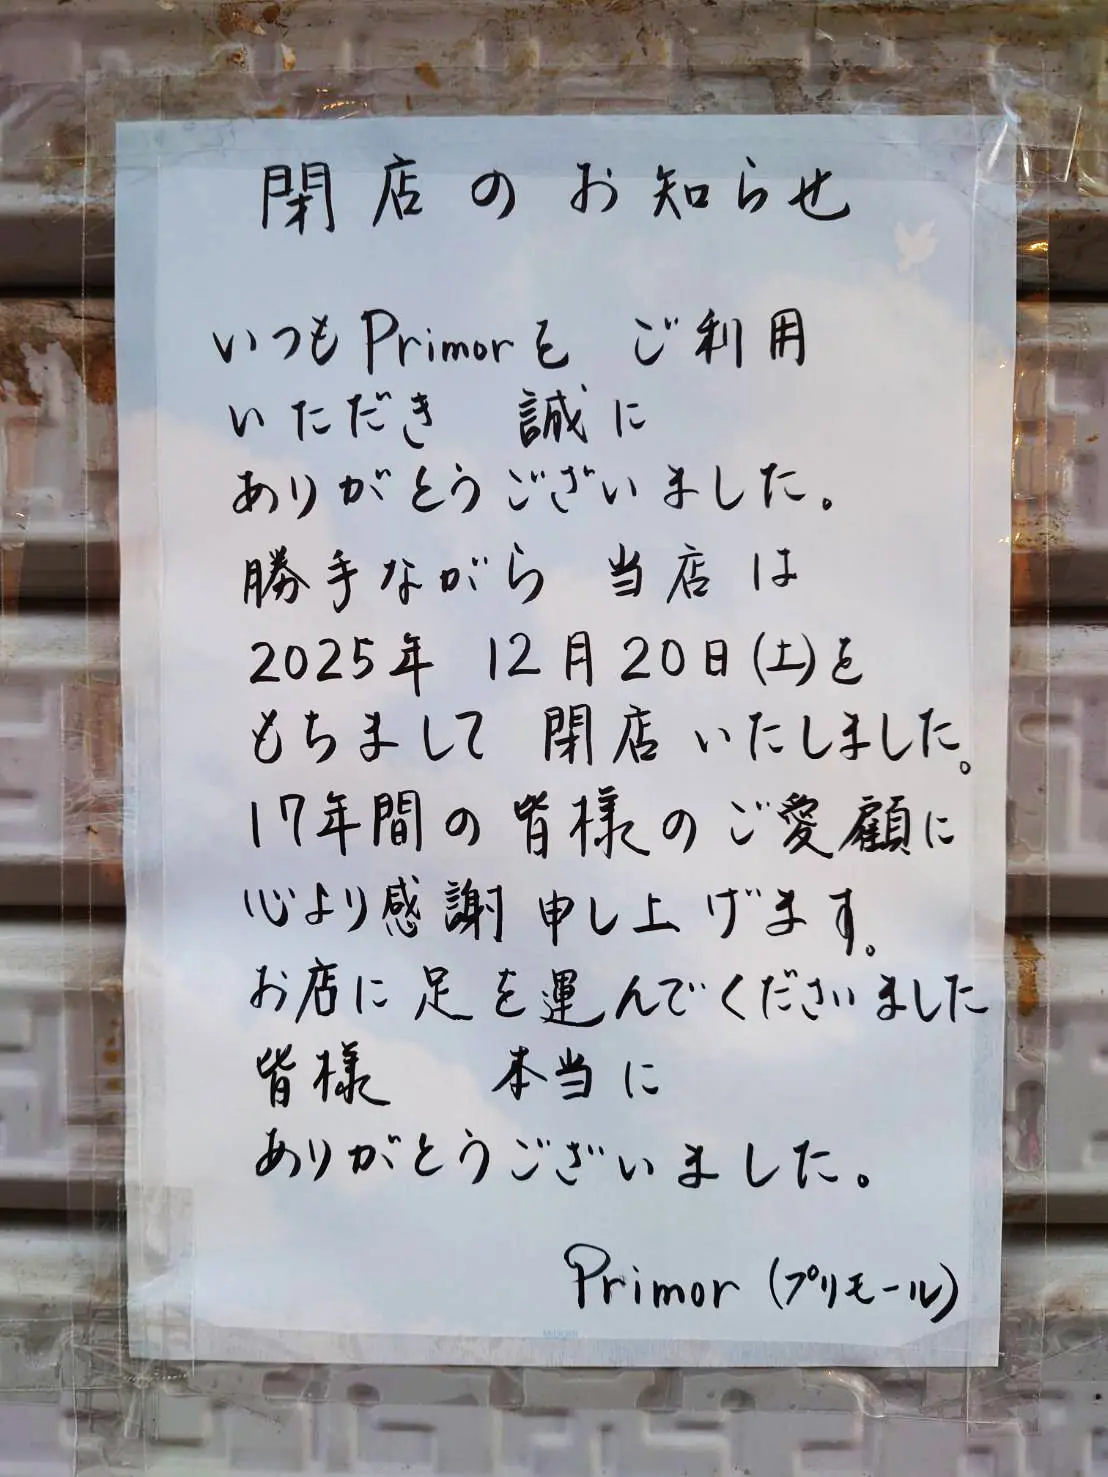 閉店のお知らせ
いつもPrimorを ご利用
いただき 誠に
ありがとうございました。
勝手ながら 当店は
2025年 12月20日(土)を
もちまして 閉店いたしました。
17年間の皆様のご愛顧に
心より感謝申し上げます。
お店に足を運んでくださいました
皆様 本当に
ありがとうございました。
Primor (プリモール)